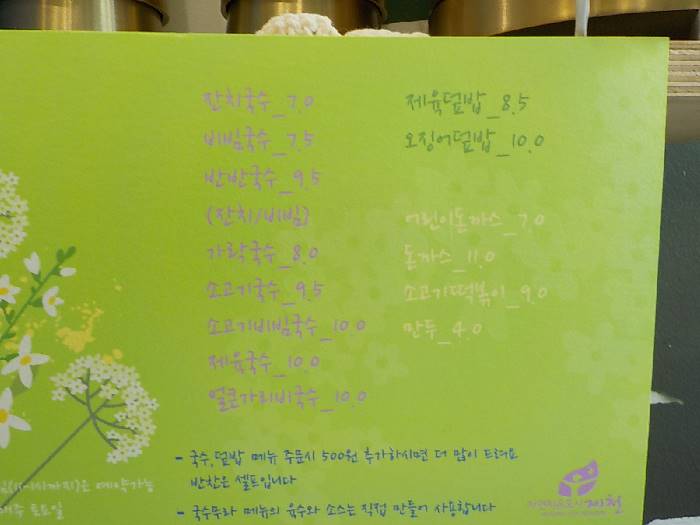 잔치국수_7.0
비빔국수_7.5
반반국수_9.5
(잔치/비빔)
가락국수_8.0
소고기국수_9.5
소고기비빔국수_10.0
제육국수_10.0
얼큰가리비국수_10.0
제육덮밥_8.5
오징어덮밥_10.0
어린이돈까스_7.0
돈까스_11.0
소고기떡볶이_9.0
만두_4.0
- 국수,덮밥 메뉴 주문시 500원 추가하시면 더 많이 드려요
반찬은 셀프입니다
- 국수류와 메뉴의 육수와 소스는 직접 만들어 사용합니다
예약가능
토요일
제천